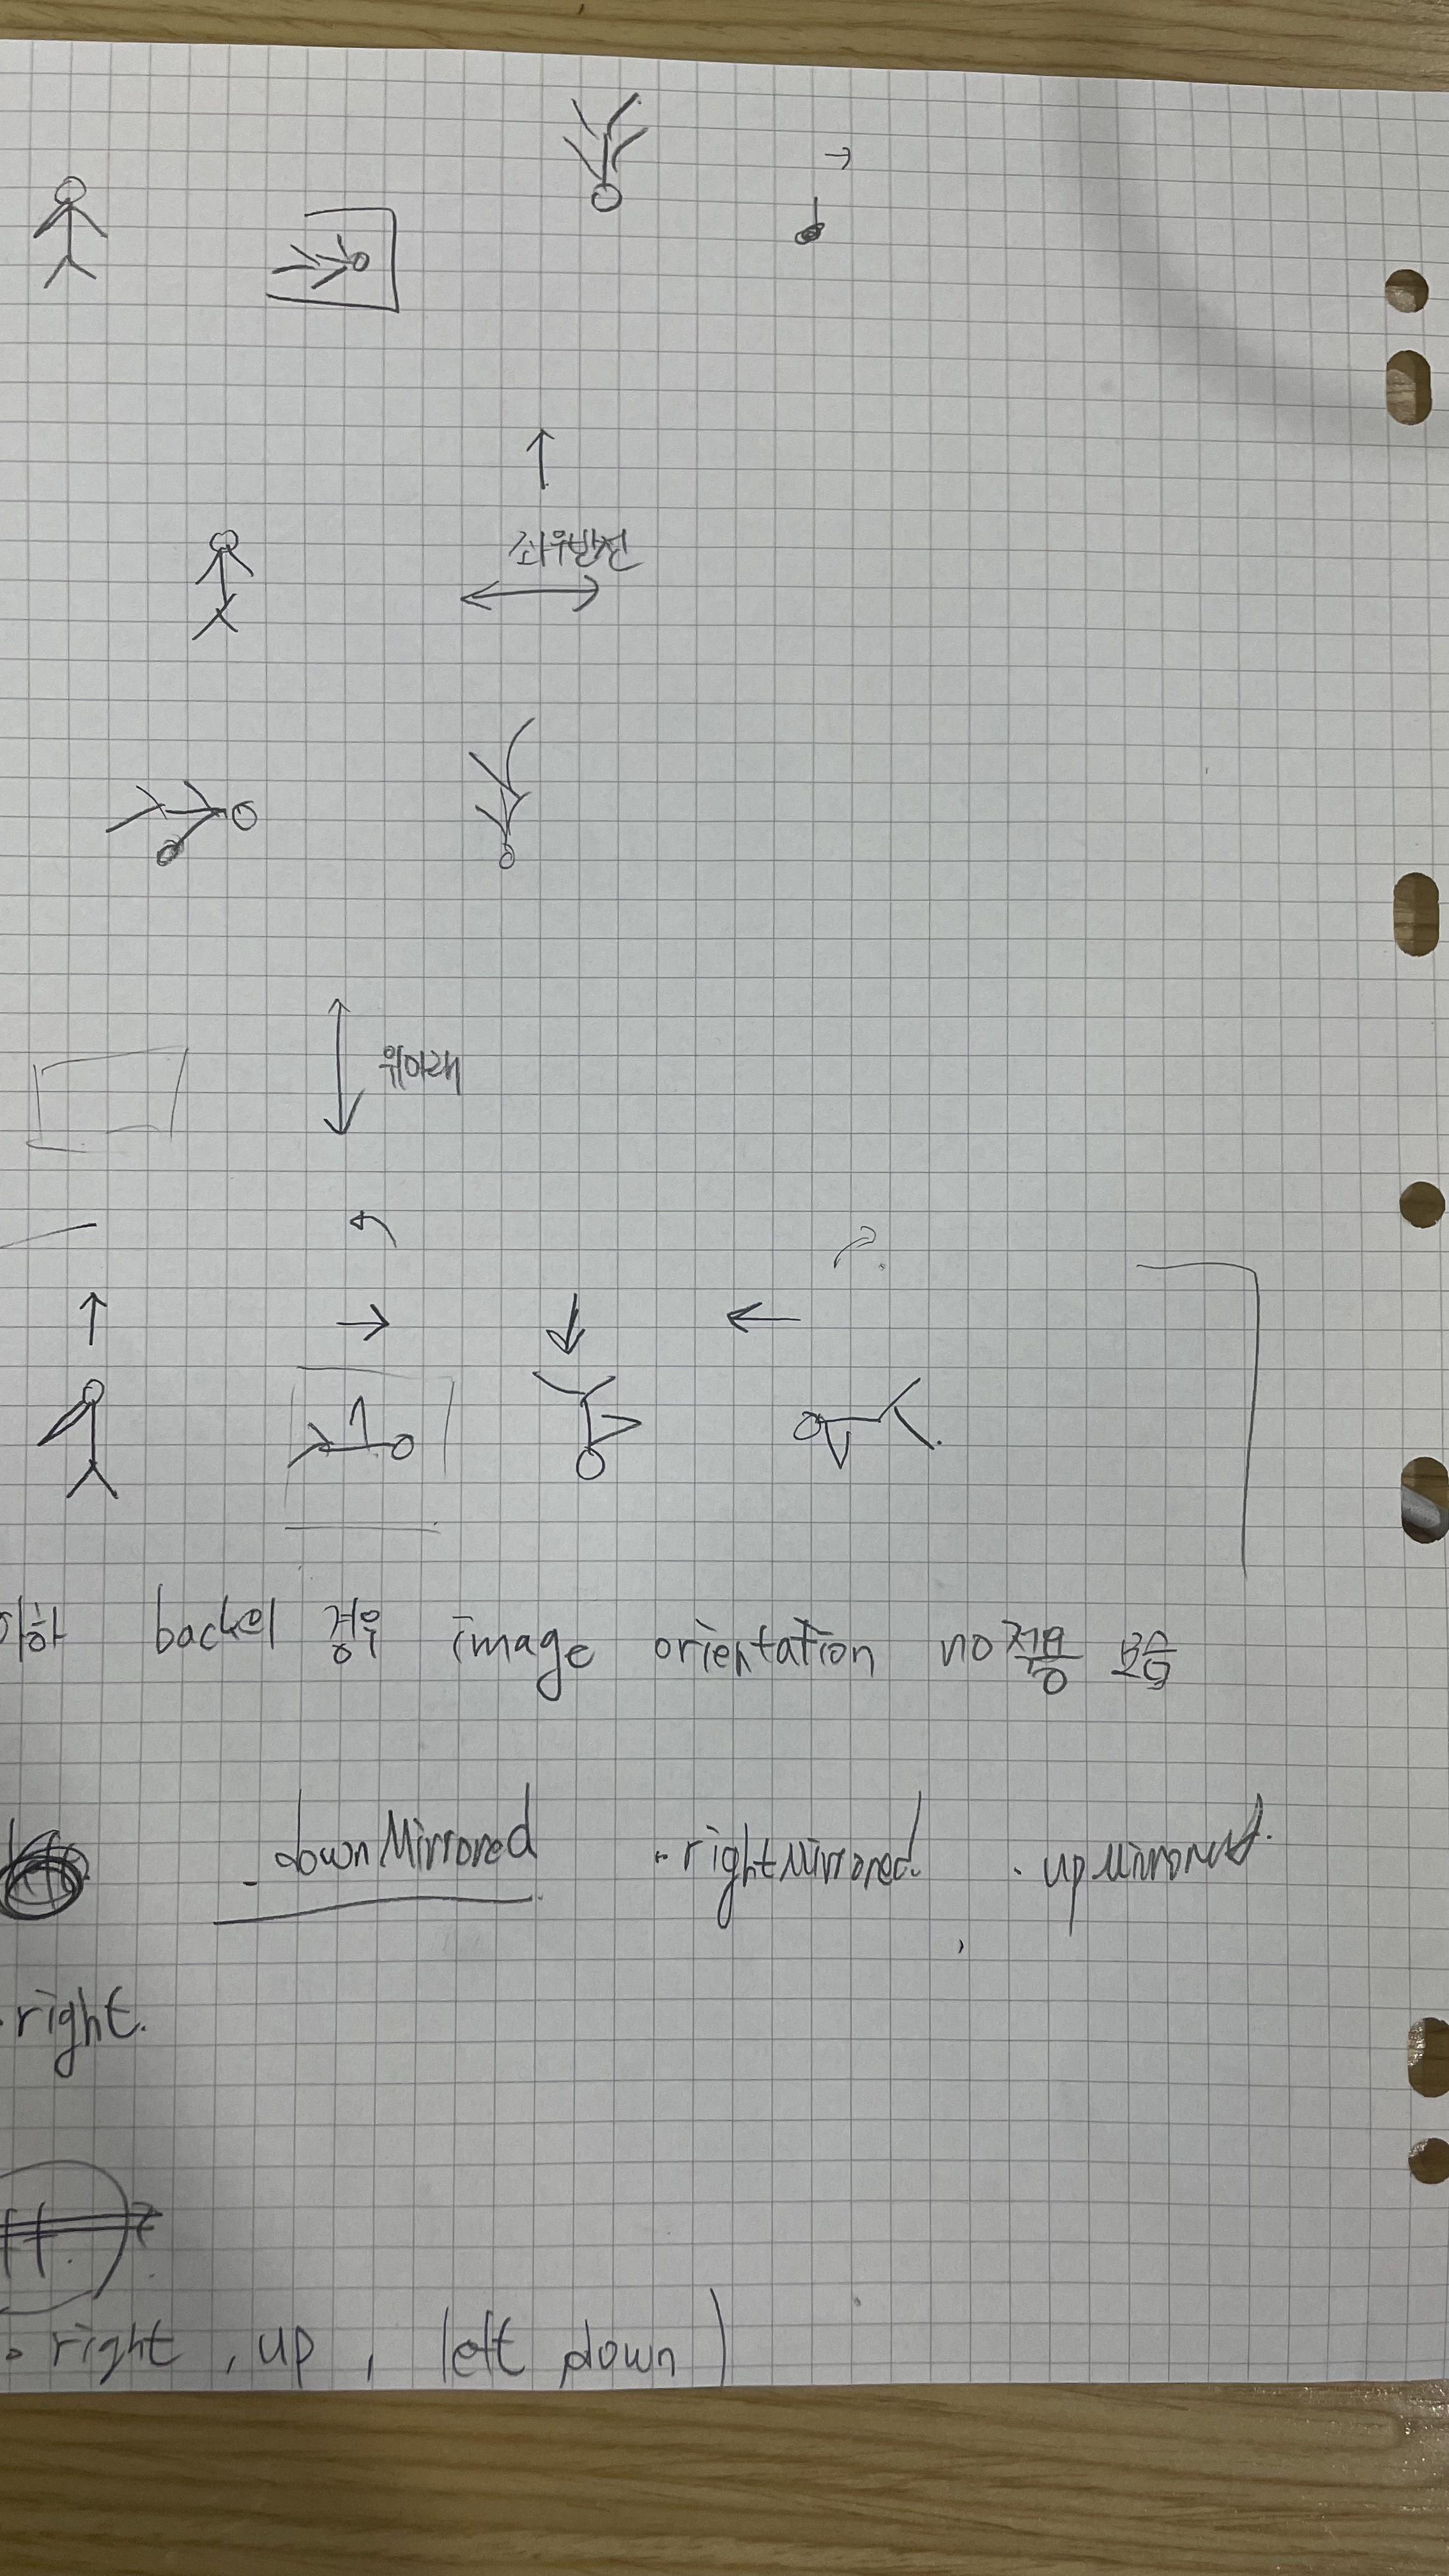 좌우반전
위아래
back의 경우 image orientation no적용 모습
downMirrored . rightMirrored. . upMirrored.
. right.
right , up , left down )